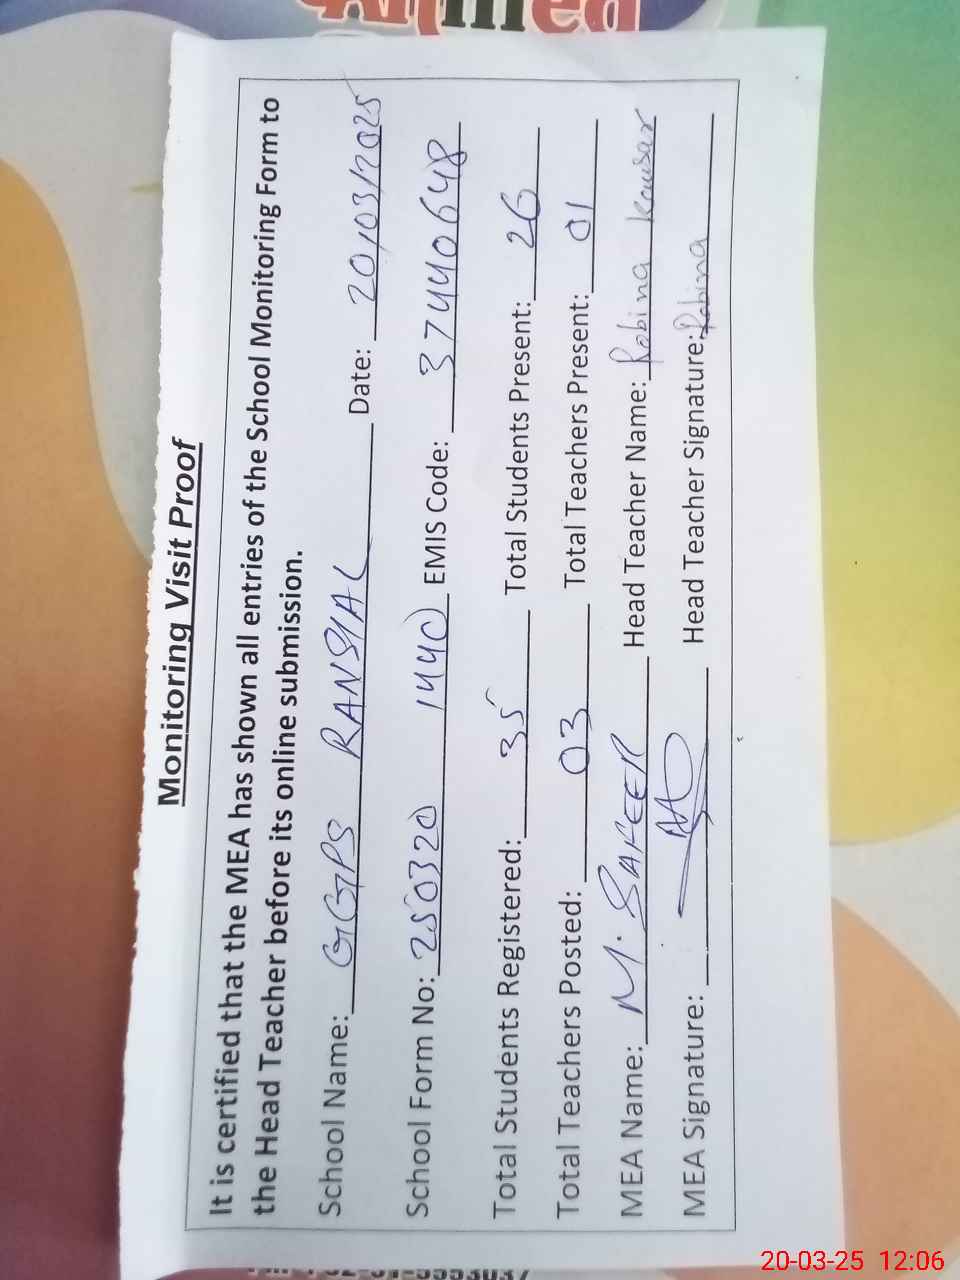 Monitoring Visit Proof
It is certified that the MEA has shown all entries of the School Monitoring Form to
the Head Teacher before its online submission.
School Name: GGPS RANSIAL Date: 20/03/2025
School Form No: 250320 1440 EMIS Code: 37440648
Total Students Registered: 35 Total Students Present: 26
Total Teachers Posted: 03 Total Teachers Present: 01
MEA Name: M. SAFEER Head Teacher Name: Robina Kousar
MEA Signature: Head Teacher Signature: Robina
20-03-25 12:06